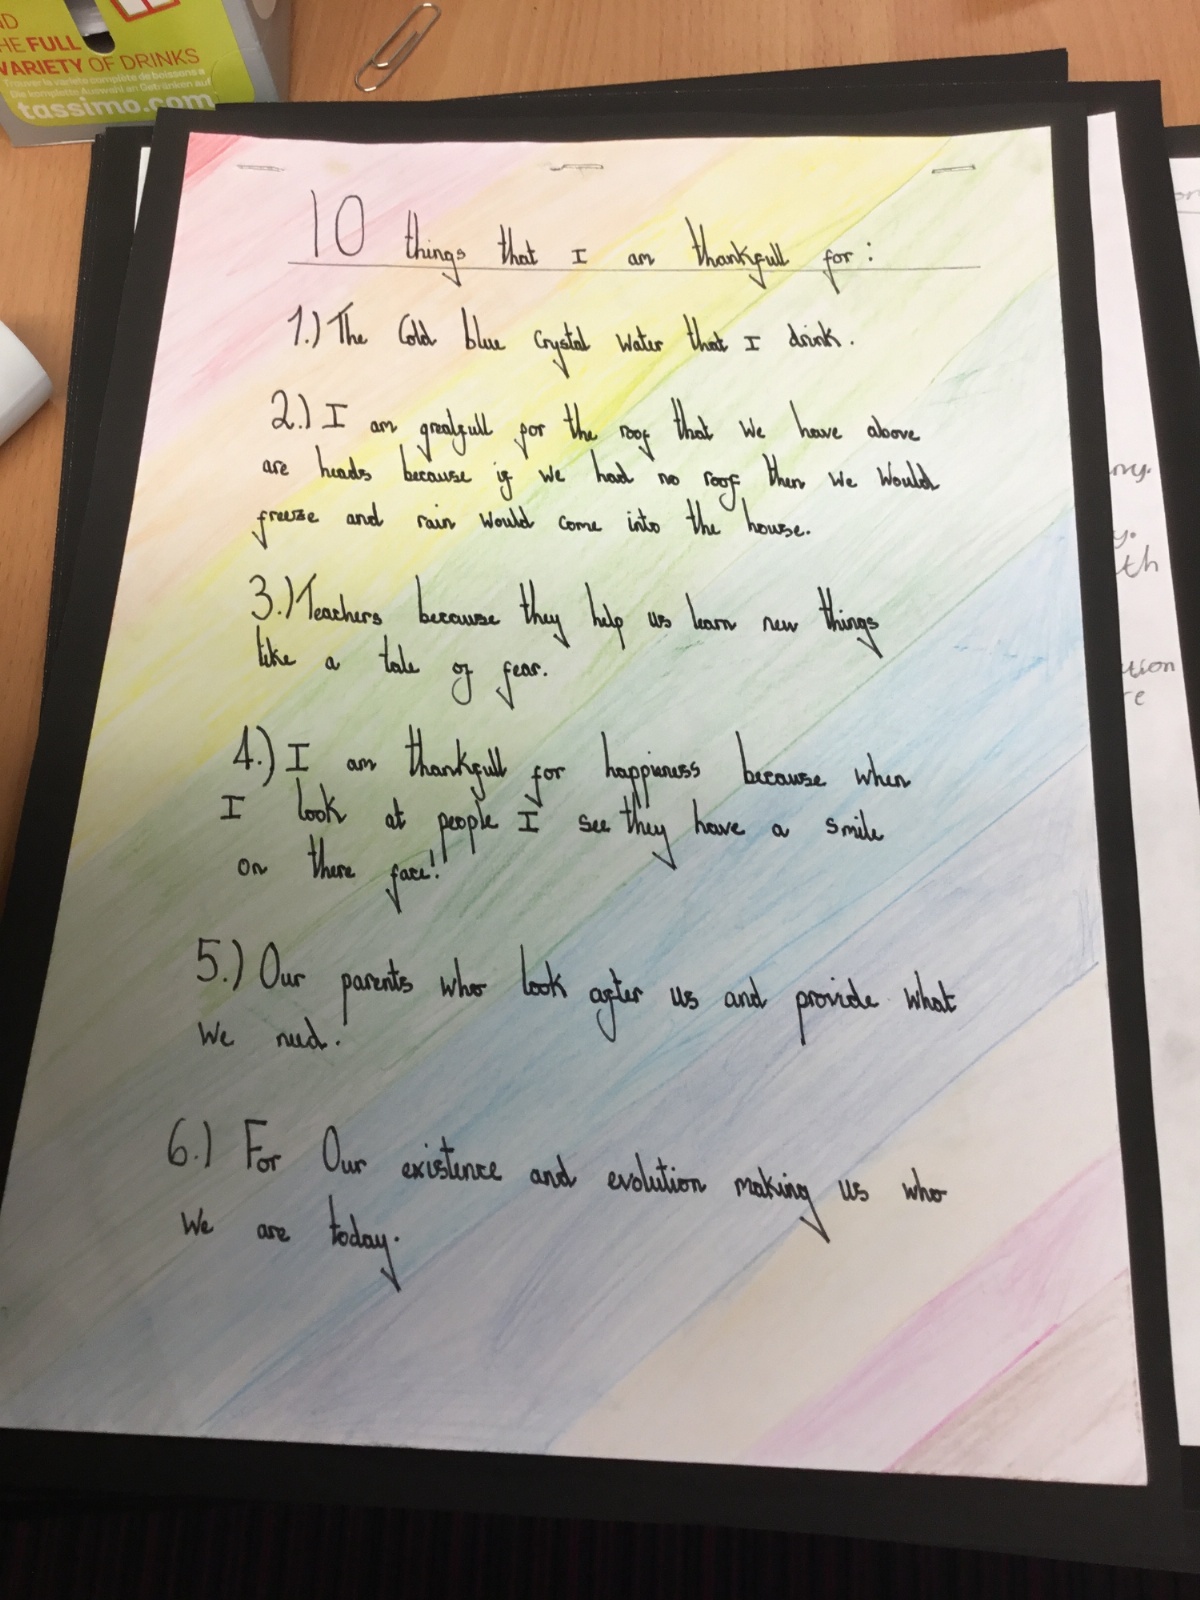 ND
HE FULL
VARIETY OF DRINKS
Trouver la variété complète de boissons à
Die komplette Auswahl an Getränken auf
tassimo.com
10 things that I am thankfull for:
1.) The Cold blue crystal water that I drink.
2.) I am greatfull for the roof that we have above
are heads because if we had no roof then we would
freeze and rain would come into the house.
3.) Teachers because they help us learn new things
like a tale of fear.
4.) I am thankfull for happieness because when
I look at people I see they have a smile
on there face!
5.) Our parents who look after us and provide what
we need.
6.) For Our existence and evolution making us who
we are today.
ny.
y.
th
ution
re